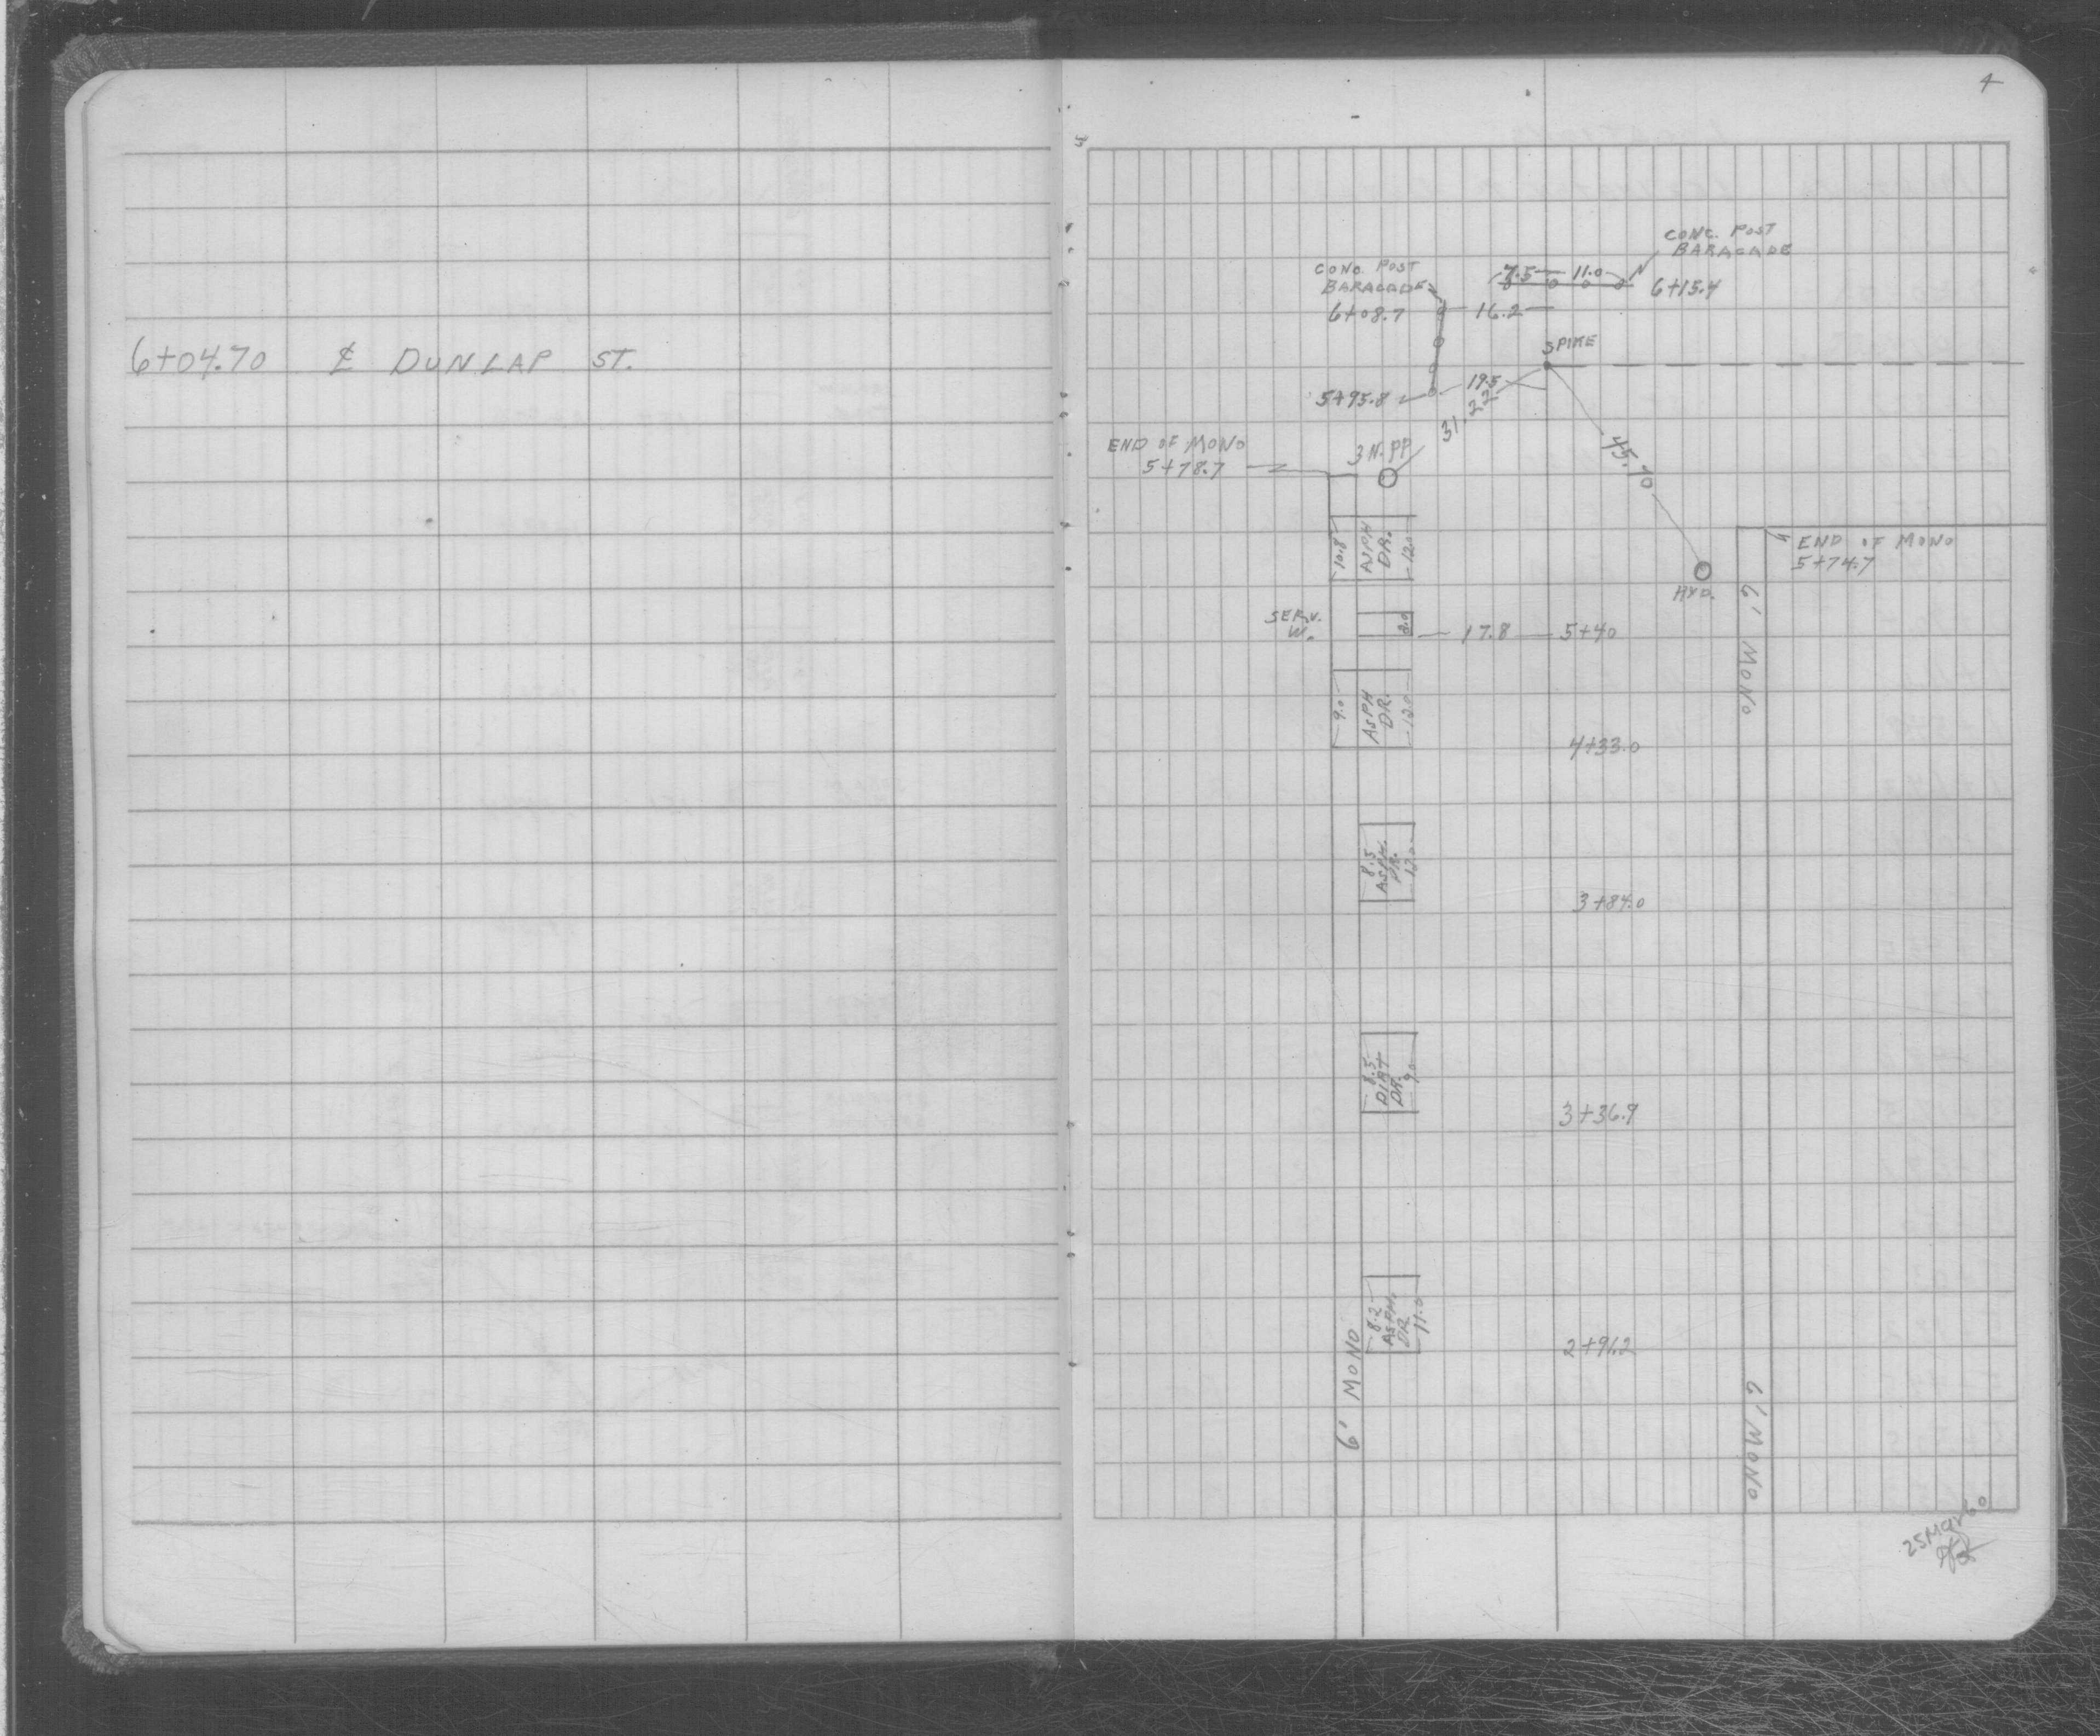 4
CONC. POST
BARACADE
7.5 11.0
6+15.4
CONC. POST
BARACADE
6+08.7 16.2
SPIKE
6+04.70 ℄ DUNLAP ST.
19.5
5+95.8
31.22
END OF MONO
5+78.7
3 N. PP
45.70
10.8
ASPH
DR.
12.0
END OF MONO
5+74.7
HYD.
6' MONO
SERV.
W.
3.0
17.8 5+40
9.0
ASPH
DR.
12.0
4+33.0
8.5
ASPH.
DR.
12.0
3+84.0
8.5
DIRT
DR.
9.0
3+36.9
8.2
ASPH.
DR
11.0
2+91.2
6' MONO
6' MONO
25 Mar 60